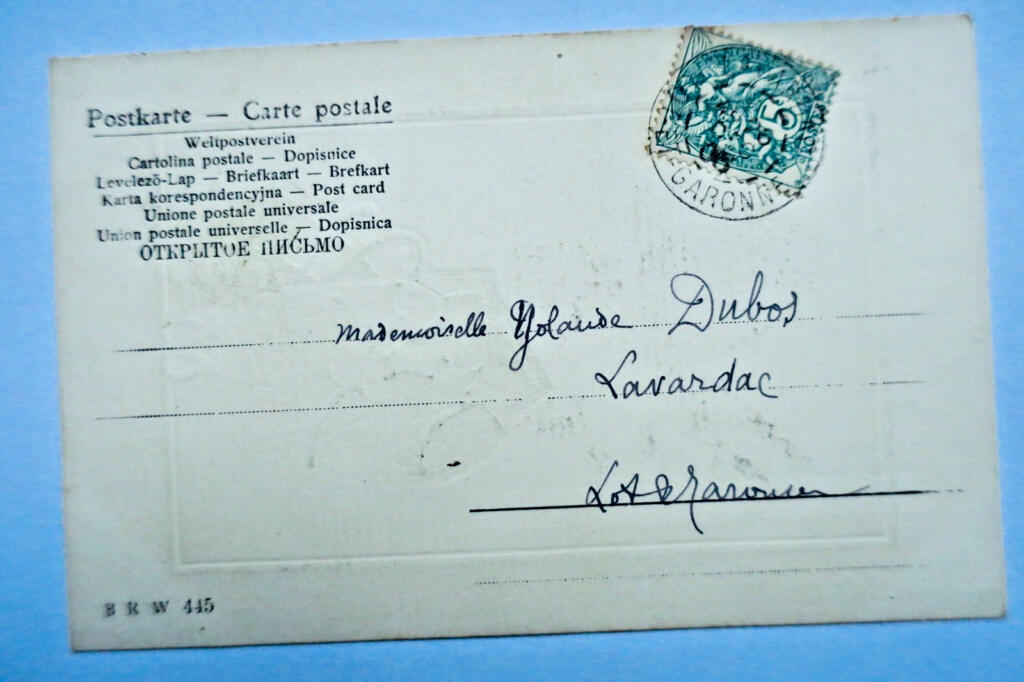 Postkarte — Carte postale
Weltpostverein
Cartolina postale — Dopisnice
Levelező-Lap — Briefkaart — Brefkart
Karta korespondencyjna — Post card
Unione postale universale
Union postale universelle — Dopisnica
ОТКРЫТОЕ ПИСЬМО
5
GARONNE
Mademoiselle Yolande Dubos
Lavardac
Lot & Garonne
B R W 445